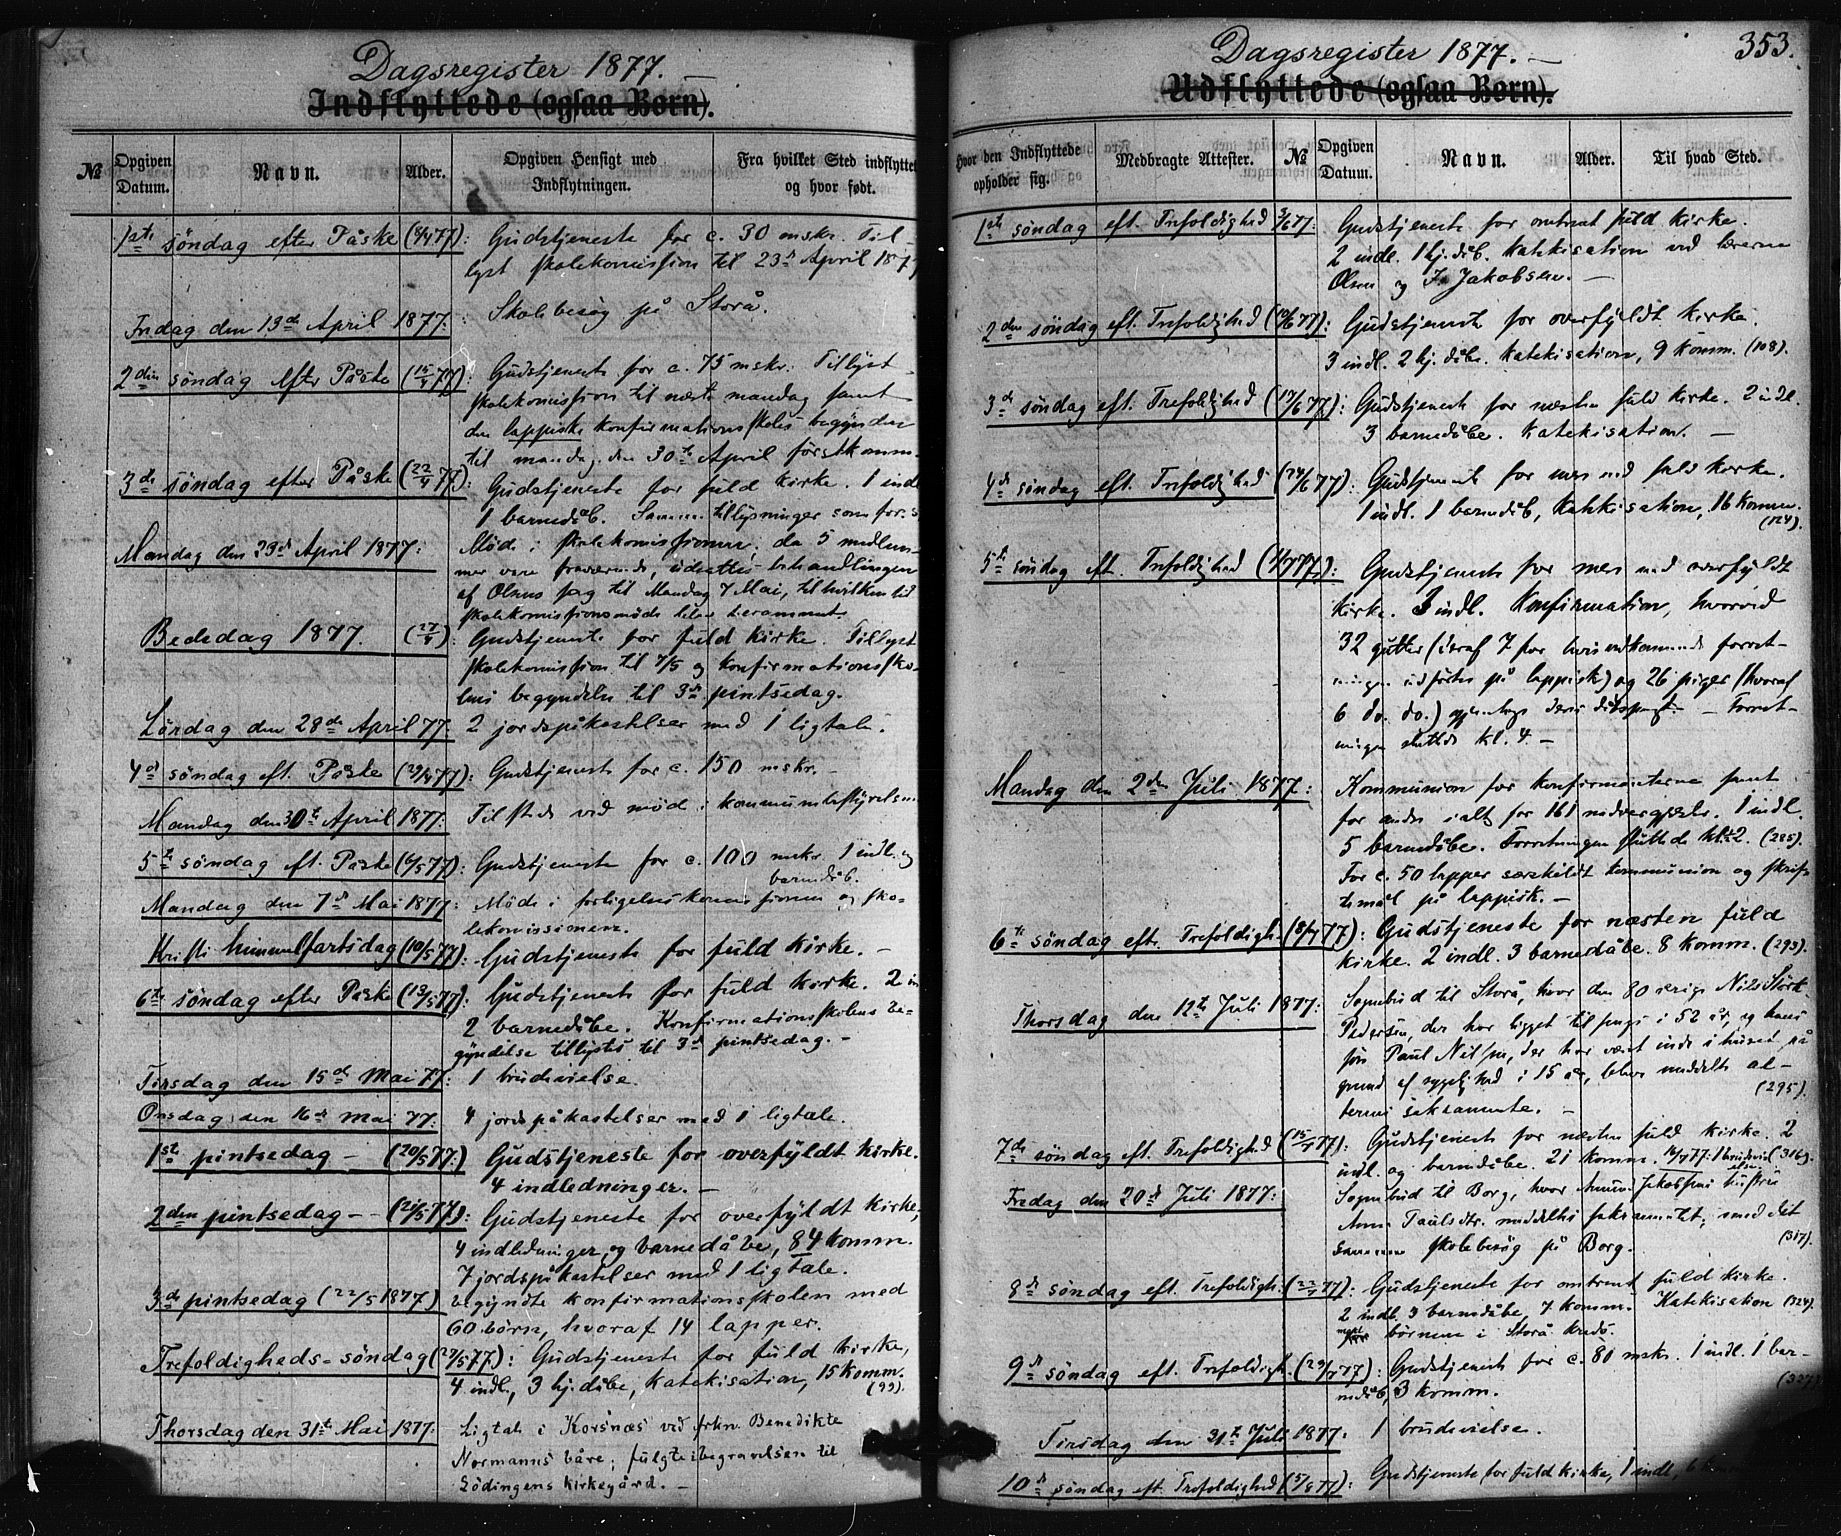 Dagsregister 1877. —
Indflyttede (ogsaa Børn).
№
Opgiven Datum.
Navn.
Alder.
Opgiven Hensigt med Indflytningen.
Fra hvilket Sted indflyttet og hvor født.
1ste søndag efter Påske (8/4 77): Gudstjeneste for c. 30 mskr. Til-
lyst skolekomission til 23de April 1877
Fredag den 13de April 1877: Skolebesøg på Storå.
2den søndag efter Påske (15/4 77): Gudstjeneste for c. 75 mskr. Tillyst
skolekomission til næste mandag samt
den lappiske konfirmationsskoles begynden
til mandag den 30te April førstkomm.
3de søndag efter Påske (22/4 77): Gudstjeneste for fuld kirke. 1 indl.
1 barnedåb. Samme tillysninger som for. s
Mandag den 23de April 1877: Møde i skolekomissionen, da 5 medlem-
mer vare fraværende, udsattes behandlingen
af Olsens sag til Mandag 7 Mai, til hvilken tid
skolekomissionsmøde blev berammet.
Bededag 1877. (27/4): Gudstjeneste for fuld kirke. Tillyst
skolekomission til 7/5 og konfirmationssko-
lens begyndelse til 3de pintsedag.
Lördag den 28de April 77. 2 jordspåkastelser med 1 ligtale.
4de søndag eft. Påske (29/4 77): Gudstjeneste for c. 150 mskr. —
Mandag den 30te April 1877: Tilstede ved møde i kommunebestyrelsen
5te søndag eft. Påske (6/5 77): Gudstjeneste for c. 100 mskr. 1 indl. og
barnedåb.
Mandag den 7de Mai 1877: Møde i forligelseskomissionen og sko-
lekomissionen.
Kristi himmelfartsdag (10/5 77): Gudstjeneste for fuld kirke. —
6te søndag efter Påske (13/5 77): Gudstjeneste for fuld kirke. 2 in
2 barnedåbe. Konfirmationsskolens be-
gyndelse tillystes til 3de pintsedag. —
Tirsdag den 15de Mai 77: 1 brudevielse.
Onsdag den 16de Mai 77. 4 jordspåkastelser med 1 ligtale.
1ste pintsedag — (20/5 77:) Gudstjeneste for overfyldt kirke.
4 indledninger. —
2den pintsedag — (21/5 77): Gudstjeneste for overfyldt kirke,
4 indledninger og barnedåbe, 84 komm.
7 jordspåkastelser med 1 ligtale.
3de pintsedag (22/5 1877) begyndte konfirmationsskolen med
60 børn, hvoraf 14 lapper.
Trefoldigheds-søndag (27/5 77): Gudstjeneste for fuld kirke,
4 indl., 3 hj.dåbe, katekisation, 15 komm.
(99).
Thorsdag den 31te Mai 1877: Ligtale i Korsnæs ved frkn. Benedikte
Normanns båre; fulgte begravelsen til
Lödingens kirkegård. —
353.
Dagsregister 1877. —
Udflyttede (ogsaa Børn).
Hvor den Indflyttede opholder sig.
Medbragte Attester.
№
Opgiven Datum.
Navn.
Alder.
Til hvad Sted.
1ste søndag eft. Trefoldighed 3/6 77: Gudstjeneste for omtrent fuld kirke.
2 indl. 1 hj.dåb. katekisation ved lærerne
Olsen og Jakobsen. —
2den søndag eft. Trefoldighed (10/6 77): Gudstjeneste for overfyldt kirke.
3 indl. 2 hj.dåbe. katekisation, 9 komm. (108).
3de søndag eft. Trefoldighed (17/6 77): Gudstjeneste for næsten fuld kirke. 2 indl.
3 barnedåbe. katekisation. —
4de søndag eft. Trefoldighed (24/6 77): Gudstjeneste for mer end fuld kirke.
1 indl. 1 barnedåb, katekisation, 16 komm.
(124).
5te søndag eft. Trefoldighed (1/7 77): Gudstjeneste for mer end overfyldt
kirke. 3 indl. Konfirmation, hvorved
32 gutter (deraf 7 for hvis vedkommende forret-
ningen udførtes på lappisk) og 26 piger (hvoraf
6 do. do.) gjentog deres dåbspagt. — Forret-
ningen sluttede kl. 4. —
Mandag den 2den Juli 1877: Kommunion for konfirmanterne samt
for andre ialt for 161 nadvergjæster. 1 indl.
5 barnedåbe. Forretningen sluttede kl. 2. (285).
For c. 50 lapper særskildt kommunion og skrifte-
temål på lappisk. —
6te søndag efter Trefoldigh. (8/7 77): Gudstjeneste for næsten fuld
kirke. 2 indl. 3 barnedåbe. 8 komm. (293).
Thorsdag den 12te Juli 1877: Sognebud til Storå, hvor den 80 årige Nils Störk
Pedersen, der har ligget til sengs i 52 år, og hans
søn Paul Nilsen, der har været inde i huset på
grund af sygelighed i 15 år, bleve meddelte al-
terens sakramente. —
(295).
7de søndag eft. Trefoldighed (15/7 77): Gudstjeneste for næsten fuld kirke. 2
indl. og barnedåbe. 21 komm. 16/7 77: 1 brudevielse (316).
Fredag den 20de Juli 1877: Sognebud til Borg, hvor Jakobsens hustru
Anne Paulsdtr. meddeltes sakramentet; med det
samme skolebesøg på Borg.
(317).
8de søndag eft. Trefoldigh. (22/7 77): Gudstjeneste for omtrent fuld kirke.
2 indl. 3 barnedåbe, 7 komm. Katekisation (324).
med børnene i Storå kreds.
9de søndag eft. Trefoldigh. (29/7 77): Gudstjeneste for c. 80 mskr. 1 indl. 1 bar-
nedåb, 3 komm.
(327)
Tirsdag den 31te Juli 1877. 1 brudevielse.
10de søndag eft. Trefoldighed (5/8 77): Gudstjeneste for fuld kirke, 1 indl, 6 komm